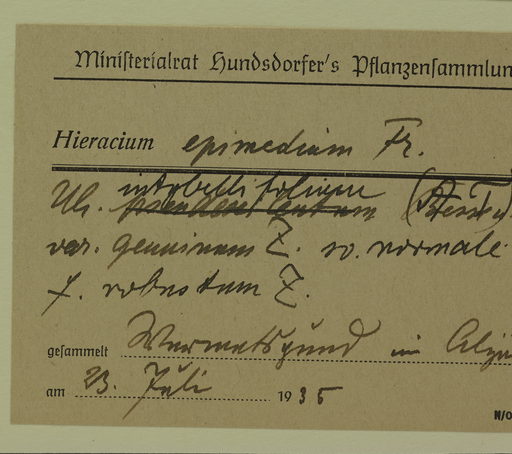 Ministerialrat Hundsdorfer's Pflanzensammlun
Hieracium epimedium Fr.
intybellifolium
Ush.
var. genuinum Z. sv. normale
f. robustum Z.
gesammelt Warmatsgund im Algäu
am 23. Juli 1935
N/0